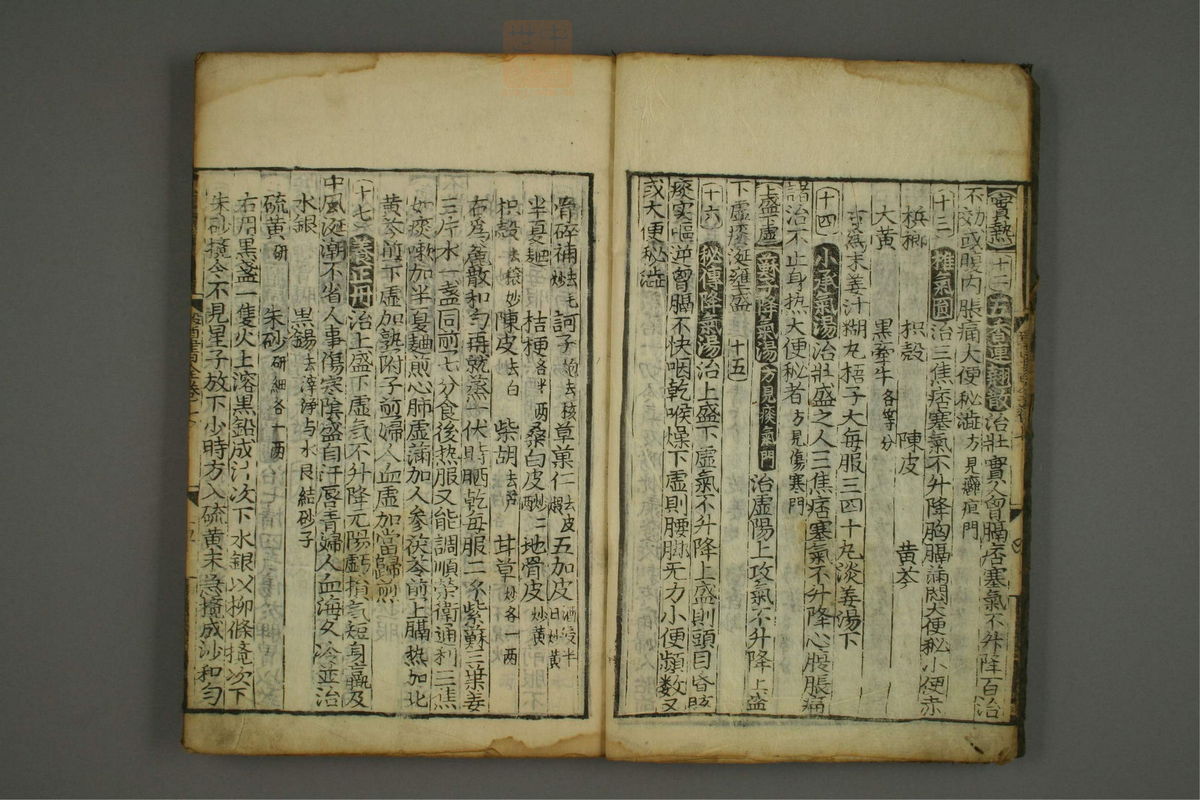 實熱 十二 五香連翹散 治壯實人胷膈痞塞氣不升降百治
不効或腹内脹痛大便秘澁方見癰疽門
十三 推氣圓 治三焦痞塞氣不升降胸膈滿悶大便秘小便赤
梹榔 枳殻 陳皮 黄芩
大黄 黒牽牛各等分
右爲末姜汁糊丸梧子大每服三四十丸淡姜湯下
十四 小承氣湯 治壯盛之人三焦痞塞氣不升降心腹脹滿
諸治不止身热大便秘者方見傷寒門
上盛下虛 蘇子降氣湯方見痰氣門 治虛陽上攻氣不升降上盛
下虛痰涎壅盛 十五
十六 秘傳降氣湯 治上盛下虛氣不升降上盛則頭目昏眩
痰实嘔逆胷膈不快咽乾喉燥下虛則腰脚无力小便頻数又
或大便秘澁
骨碎補去毛炒 訶子炮去核 草菓仁去皮煨 五加皮酒浸半日炒黄
半夏麯 桔梗各半两 桑白皮炒二两 地骨皮炒黄
枳殻去穰炒 陳皮去白 柴胡去芦 甘草炒各一两
右爲麄散和匀再就蒸一伏時晒乾每服二不紫蘇三葉姜
三片水一盞同煎七分食後热服又能調順榮衛通利三焦
如痰嗽加半夏麯煎心肺虛滿加人参茯苓煎上膈热加北
黄芩煎下虛加熟附子煎婦人血虛加當歸煎
十七 養正丹 治上盛下虛氣不升降元陽虧損氣短身羸及
中風涎潮不省人事傷寒陰盛自汗唇青婦人血海久冷並治
水銀 黒錫去滓浄与水艮結砂子
硫黄研 朱砂研細各一两
右用黒盞一隻火上溶黒鉛成汁次下水銀以柳條攪次下
朱砂攪令不見星子放下少時方入硫黄末急攪成沙和匀